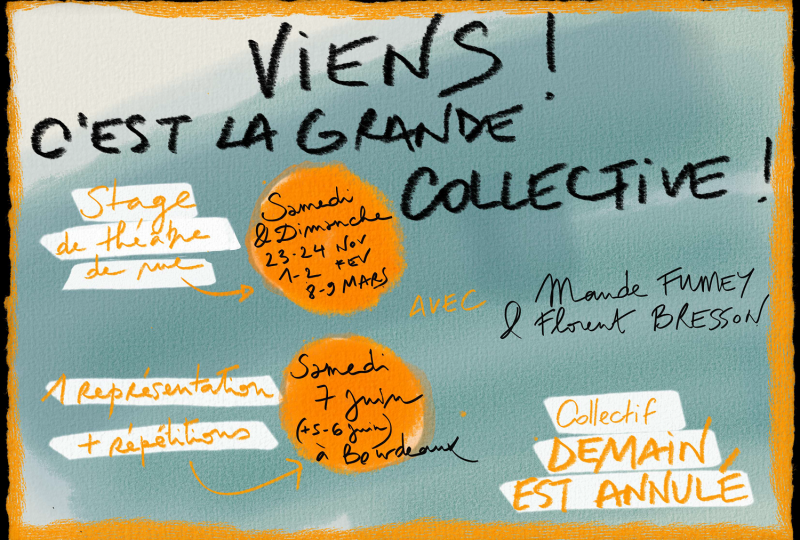 VIENS !
C'EST LA GRANDE
COLLECTIVE !
Stage
de théâtre
de rue
Samedi
& Dimanche
23-24 NOV
1-2 FEV
8-9 MARS
AVEC
Maude FUMEY
& Florent BRESSON
1 représentation
+ répétitions
Samedi
7 juin
(+5-6 juin)
à Bourdeaux
Collectif
DEMAIN
EST ANNULÉ